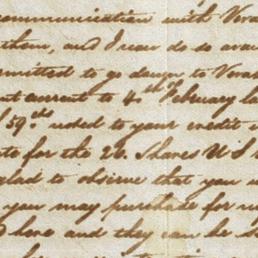 communication with Vera
them, and I now do so avai
mitted to go down to Vera
nt current to 4th February la
59ds added to your credit i
te for the 20. Shares U S
glad to observe that you
you may purchase for
here and they can be s